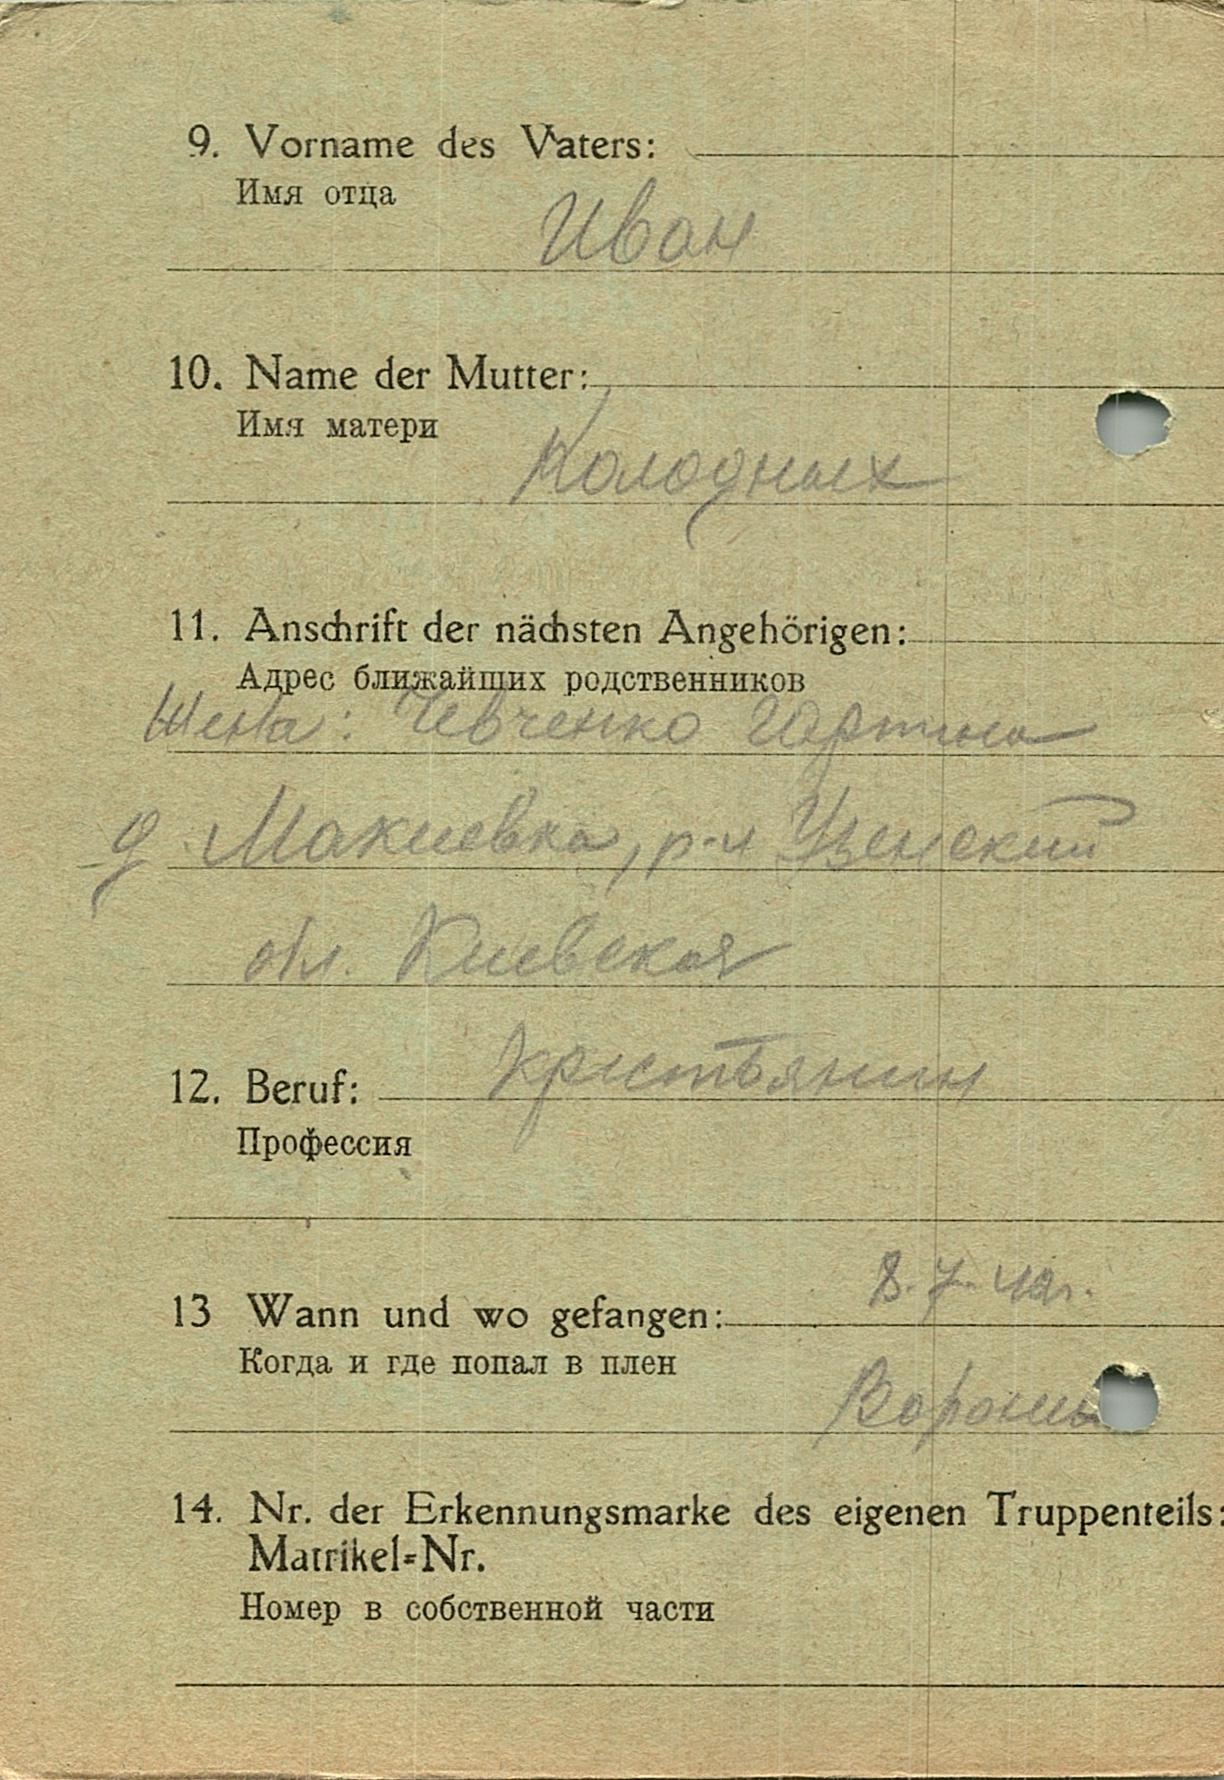 9. Vorname des Vaters:
Имя отца
Иван
10. Name der Mutter:
Имя матери
Колодных
11. Anschrift der nächsten Angehörigen:
Адрес ближайших родственников
Жена: Чевченко
д Макиевка, р-н
обл. Киевская
Крестьянин
12. Beruf:
Профессия
8. 7. 42г.
13 Wann und wo gefangen:
Когда и где попал в плен
14. Nr. der Erkennungsmarke des eigenen Truppenteils:
Matrikel=Nr.
Номер в собственной части